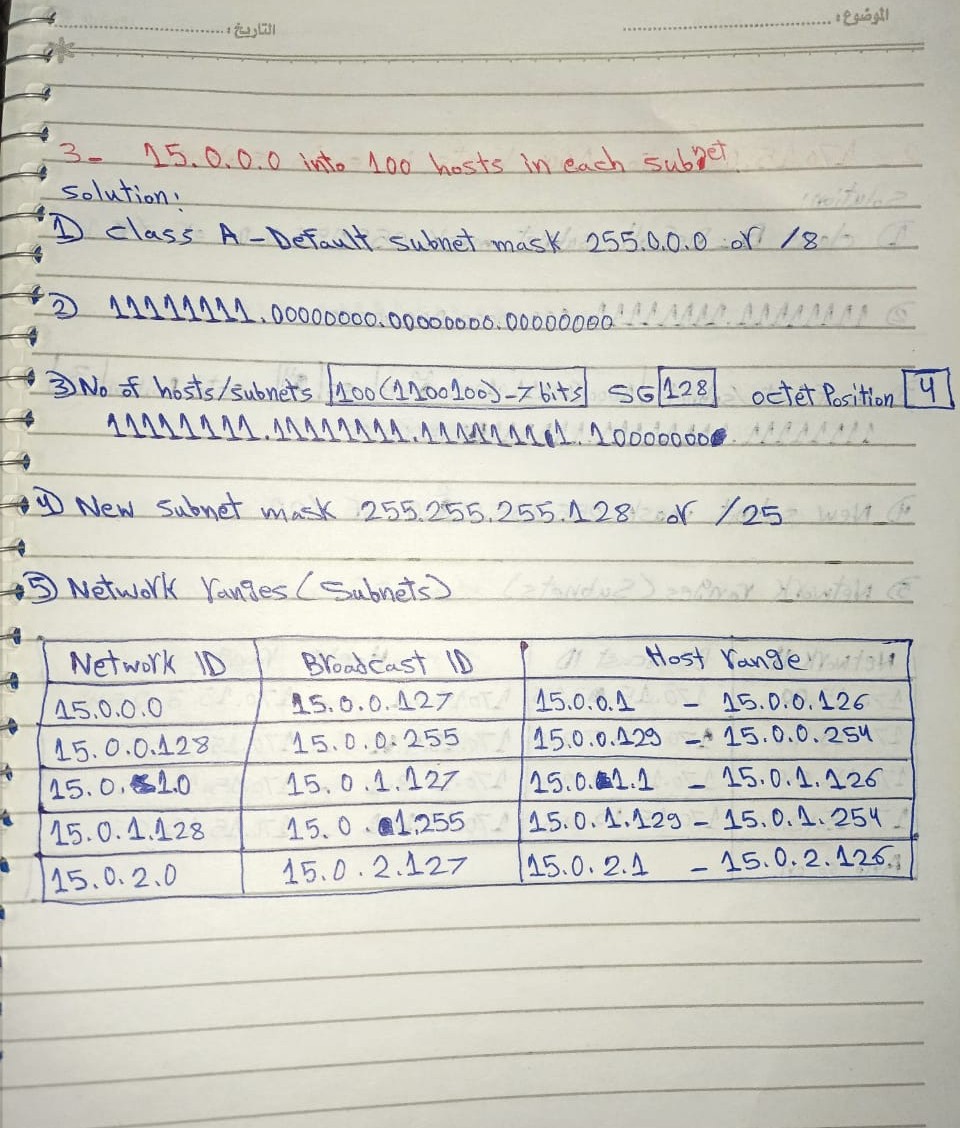 الموضوع:
التاريخ:
3- 15.0.0.0 into 100 hosts in each subnet.
Solution:
1) class A - Default subnet mask 255.0.0.0 or /8
2) 11111111.00000000.00000000.00000000
3) No of hosts/subnets 100(1100100)-7 bits SG 128 octet Position 4
11111111.11111111.11111111.10000000
4) New subnet mask 255.255.255.128 or /25
5) Network ranges (Subnets)
Network ID Broadcast ID Host range
15.0.0.0 15.0.0.127 15.0.0.1 - 15.0.0.126
15.0.0.128 15.0.0.255 15.0.0.129 - 15.0.0.254
15.0.1.0 15.0.1.127 15.0.1.1 - 15.0.1.126
15.0.1.128 15.0.1.255 15.0.1.129 - 15.0.1.254
15.0.2.0 15.0.2.127 15.0.2.1 - 15.0.2.126